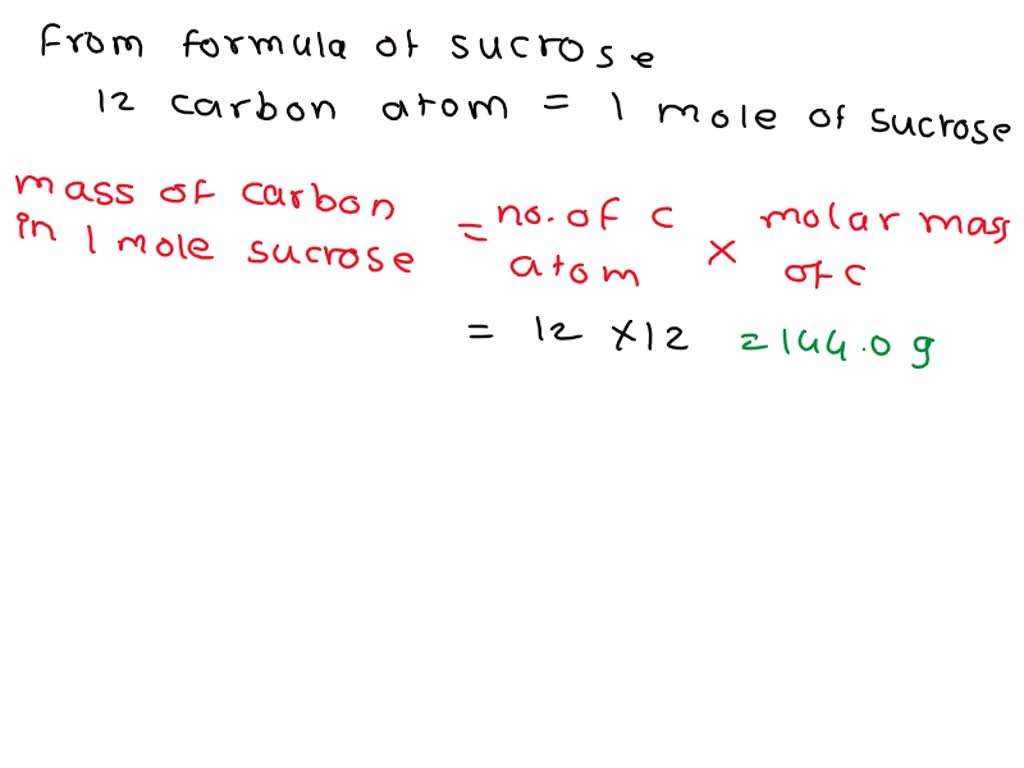 From formula of sucrose
12 carbon atom = 1 mole of sucrose
mass of carbon in 1 mole sucrose = no. of c atom × molar mass of c
= 12 × 12 = 144.0 g